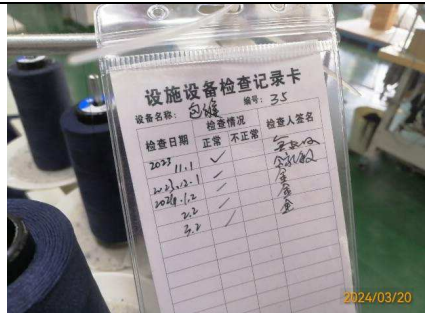 设施设备检查记录卡
设备名称: 包缝 编号: 35
检查日期 检查情况 检查人签名
正常 不正常
2023 11.1 ✓
2023.12.1 ✓
2024.1.2 ✓ 金
2.2 ✓ 金
3.2 ✓ 金
2024/03/20